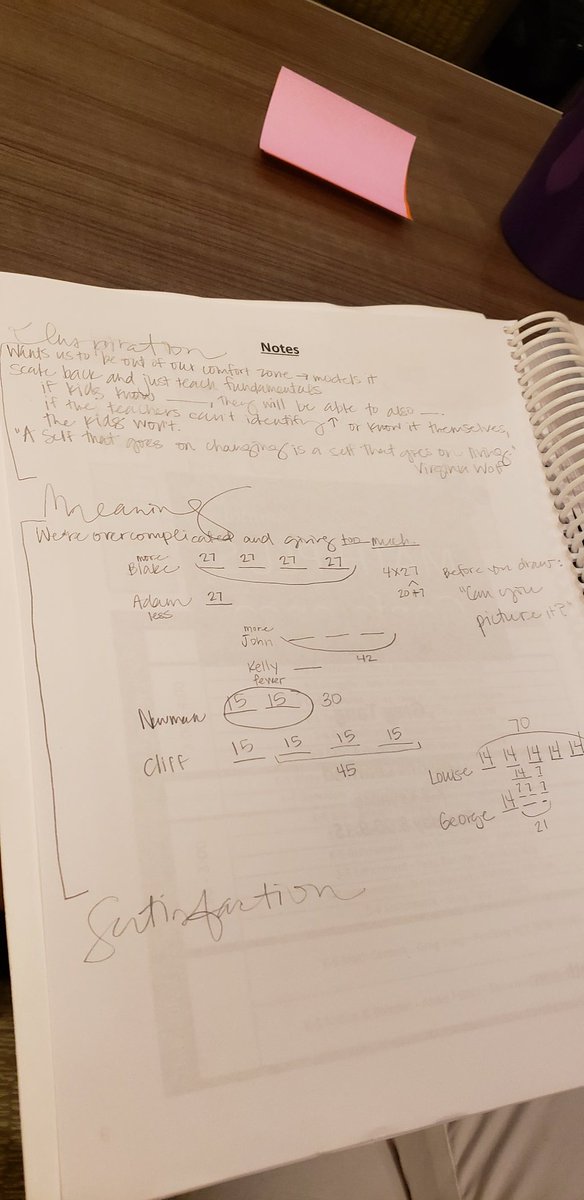 Notes
Inspiration
Wants us to be out of our comfort zone → models it
scale back and just teach fundamentals
if kids know ____, they will be able to also __.
if the teachers can't identify ↑ or know it themselves,
the kids won't.
"A self that goes on changing is a self that goes on living."
Virginia Wolf
Meaning
We're overcomplicated and giving too much.
more
Blake 27 27 27 27
4x27
20+7
Adam 27
less
Before you draw:
"Can you
picture it?"
more
John
42
Kelly
fewer
Newman 15 15 30
Cliff 15 15 15 15
45
70
Louise 14 14 14 14 14
14 7
George 14 7 7 7
21
Satisfaction